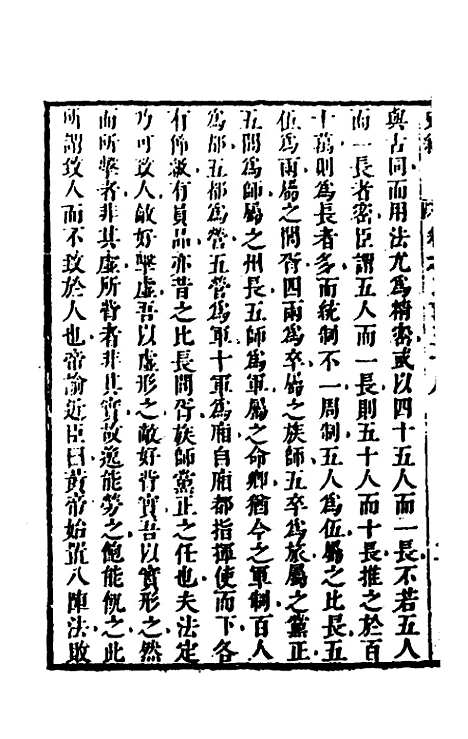 與古同而用法尤爲精密或以四十五人而一長不若五人
而一長者密臣謂五人而一長則五十人而十長推之於百
十萬則爲長者多而統制不一周制五人爲伍屬之比長五
伍爲兩屬之閭胥四兩爲卒屬之族師五卒爲旅屬之黨正
五閭爲師屬之州長五師爲軍屬之命卿猶今之軍制百人
爲都五都爲營五營爲軍十軍爲廂自廂都指揮使而下各
有節級有員品亦昔之比長閭胥族師黨正之任也夫法定
乃可致人敵好擊虛吾以虛形之敵好背實吾以實形之然
而所擊者非其虛所背者非其實故逸能勞之飽能飢之此
所謂致人而不致於人也帝諭近臣曰黃帝始置八陣法敗